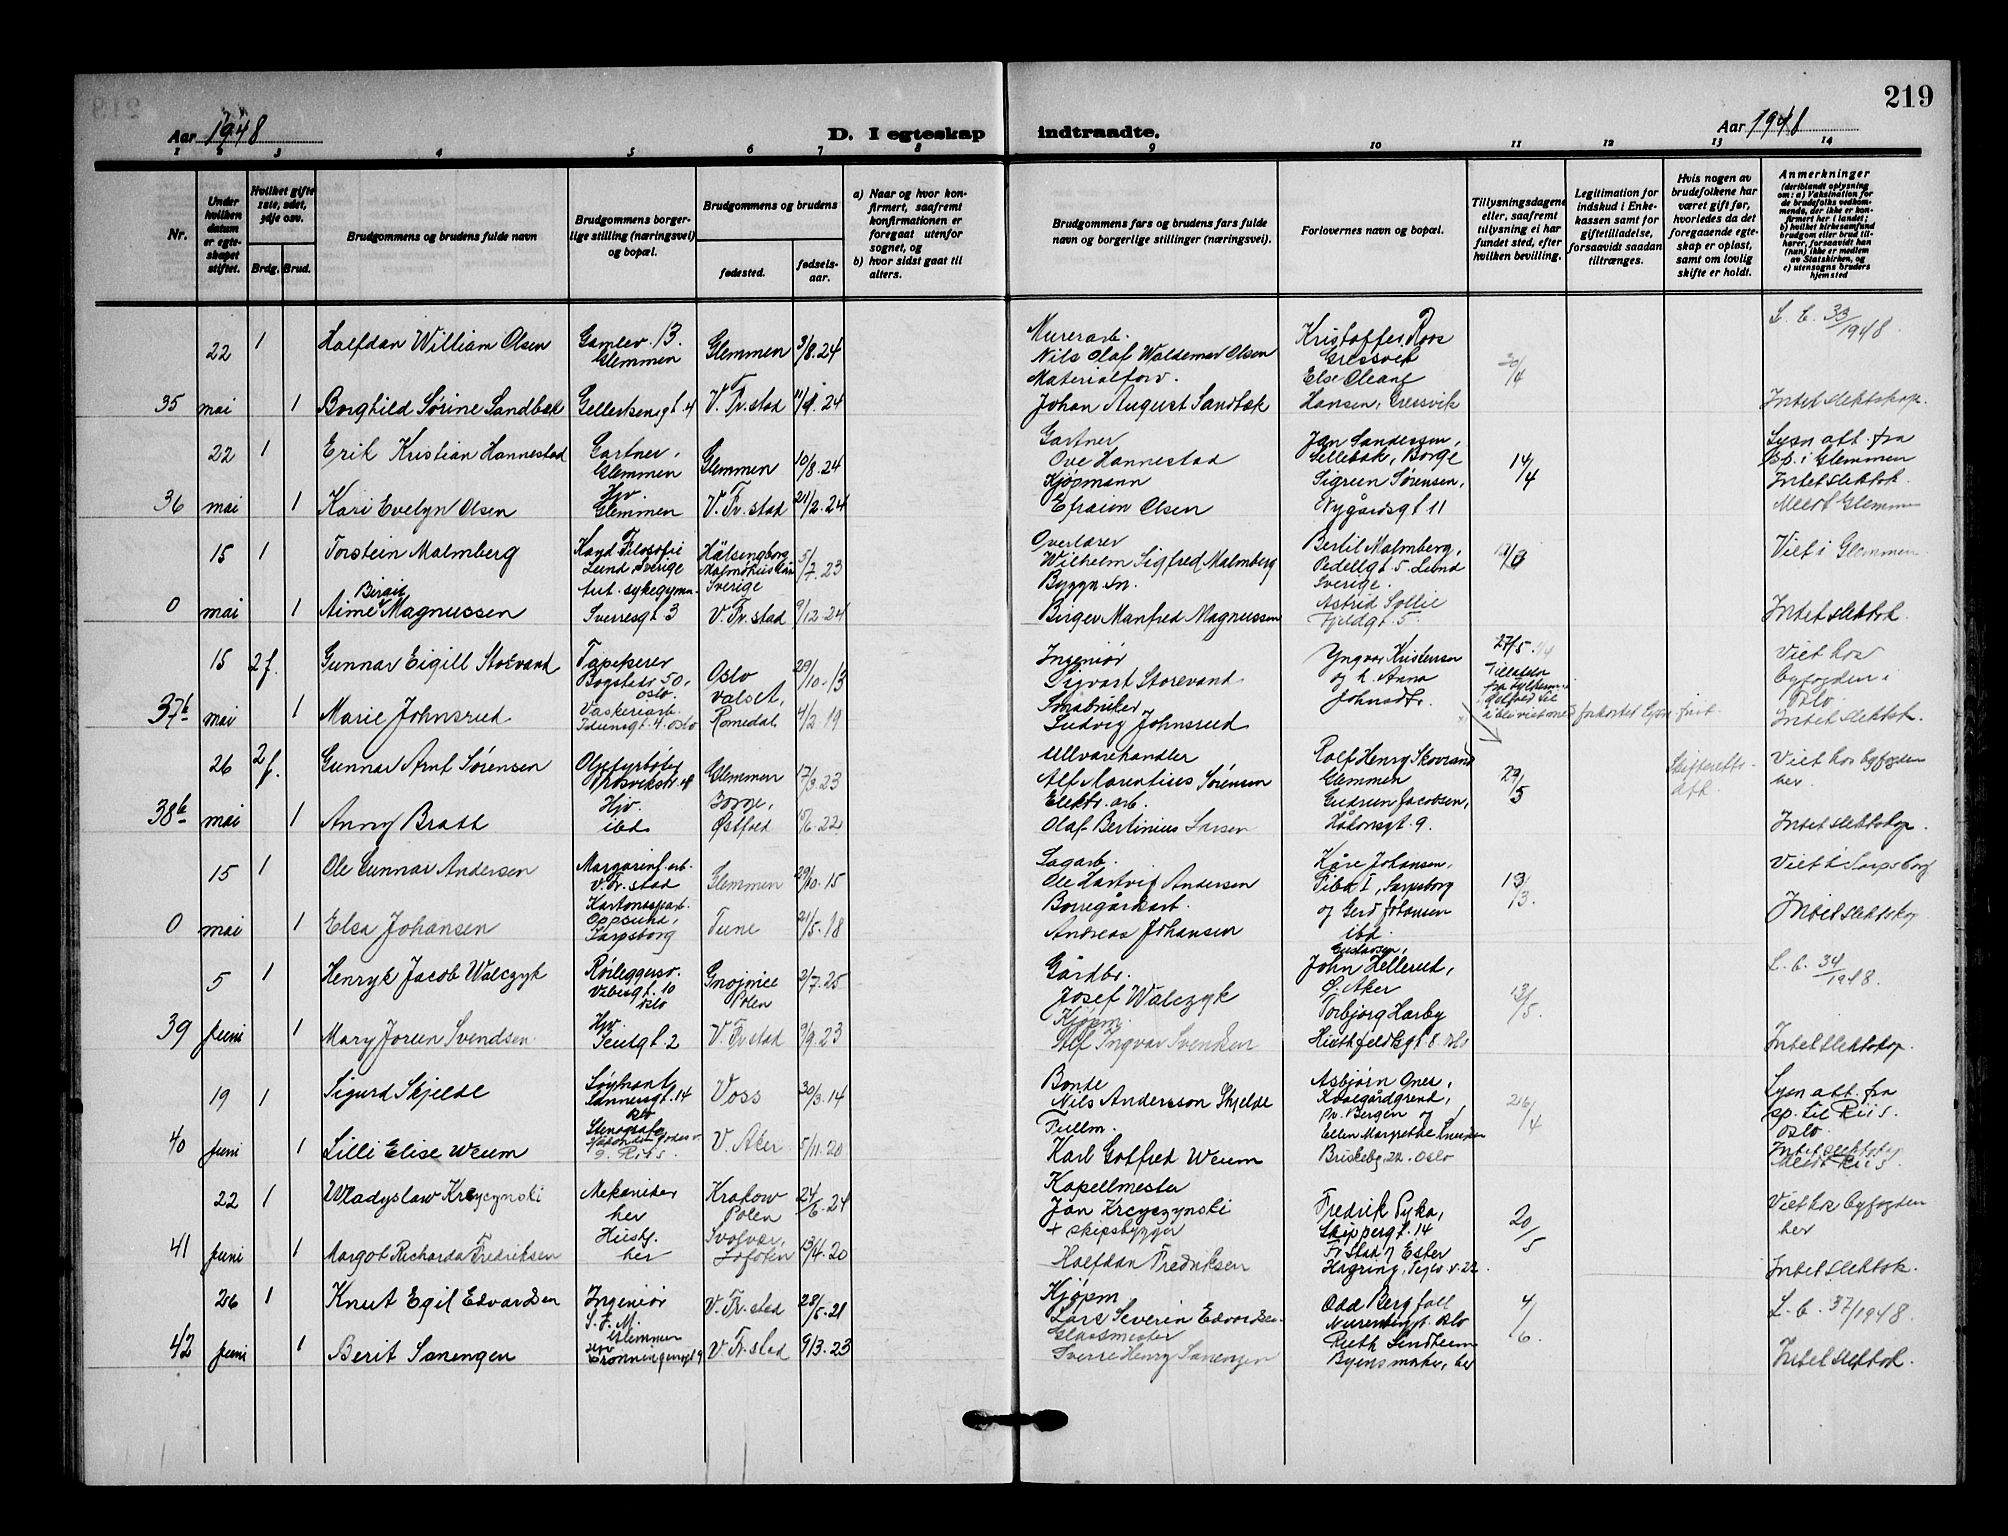 219
Aar 1948
D. I egteskap indtraadte.
Aar 1948
1 2 3 4 5 6 7 8 9 10 11 12 13 14
Nr.
Under hvilken datum er egteskapet stiftet.
Hvilket gifte 1ste, 2det, 3dje osv.
Brdg. Brud.
Brudgommens og brudens fulde navn
Brudgommens borgerlige stilling (næringsvei) og bopæl.
Brudgommens og brudens
fødested.
fødselsaar.
a) Naar og hvor konfirmert, saafremt konfirmationen er foregaat utenfor sognet, og
b) hvor sidst gaat til alters.
Brudgommens fars og brudens fars fulde navn og borgerlige stillinger (næringsvei).
Forlovernes navn og bopæl.
Tillysningsdagene eller, saafremt tillysning ei har fundet sted, efter hvilken bevilling.
Legitimation for indskud i Enkekassen samt for giftetilladelse, forsaavidt saadan tiltrænges.
Hvis nogen av brudefolkene har været gift før, hvorledes da det foregaaende egteskap er opløst, samt om lovlig skifte er holdt.
Anmerkninger
(deriblandt oplysning om: a) Vaksination for de brudefolks vedkommende, der ikke er konfirmert her i landet; b) hvilket kirkesamfund brudgom eller brud tilhører, forsaavidt han (hun) ikke er medlem av Statskirken, og c) utensogns bruders hjemsted
22 1 Halfdan William Olsen Gamlev. 13. Glemmen Glemmen 3/8.24
Murerarb. Nils Olaf Waldemar Olsen Kristoffer Roos Gressvik 30/4 L. b. 33/1948.
35 mai 1 Borghild Sørine Sandbæk Gellertsensgt 4 V. Fr.stad 24
Materialforv. Johan August Sandbæk Hansen, Gressvik Intet slektskap.
22 1 Erik Kristian Hannestad Gartner, Glemmen Glemmen 10/8.24
Gartner Ove Hannestad Jan Sandersen, Sellebak, Borge 14/4 Lysn. att. fra sp. i Glemmen
36 mai 1 Kari Evelyn Olsen Hjv. Glemmen V. Fr.stad 21/2.24
Kjøpmann Efraim Olsen Sigrun Sørensen, Nygårdsgt 11 Intet slektsk. Meldt Glemmen
15 1 Torstein Malmberg Kand Filosofi Lund, Sverige Hälsingborg Sverige 5/7.23
Overlærer Wilhelm Sigfred Malmberg Bertil Malmberg, Pedellgt 5. Lund Sverige. Viet i Glemmen
0 mai 1 Aime Birgit Magnussen Aut. sykegymn. Sverresgt 3 V. Fr.stad 9/12.24
Byggm. Birger Manfred Magnussen Astrid Sollie Fjeldgt. 5. Intet slektsk.
15 2 f. Gunnar Eigill Storvand Tapetserer Bogstadv 50, Oslo. Oslo 29/10.13
Ingeniør Sigvart Storevand Yngvar Kristensen og h. Anna Johnsdtr. 27/5. Viet hos byfogden i Oslo
37b mai 1 Marie Johnsrud Vaskeriarb. Idunsgt. 4. Oslo Valset, Romedal 4/2 19
Småbruker Ludvig Johnsrud forkortet lysn. frist. Intet slektsk.
26 2 f. Gunnar Arnt Sørensen Glemmen 17/3.23
Ullvarehandler Alf Marentius Sørensen Rolf Henry Skovrand Glemmen 29/5 Skifteretts- att. Viet hos byfogden her.
38b mai 1 Anny Brath Hjv. ibd Borge, Østfold 22
Elektr. arb. Olaf Bertinius Larsen Gudrun Jacobsen, Håkonsgt. 9. Intet slektskap.
15 1 Ole Gunnar Andersen Margarinf. arb. V. Fr. stad Glemmen 29/10.15
Sagarb. Ole Hartvig Andersen Kåre Johansen, Sarpsborg Viet i Sarpsborg
0 mai 1 Elsa Johansen Oppsund, Sarpsborg Tune 21/5.18
Borregårdarb. Andreas Johansen og Gerd Johansen ibd. Intet slektskap
5 1 Henryk Jacob Walczyk Rørleggersv. Vibesgt. 10 Oslo Polen 2/7.25
Gårdbr. Josef Walczyk John Gustavsen, Hellerud, Ø. Aker 13/5. L. b. 34/1948.
39 juni 1 Mary Jorun Svendsen Hjv. V. Fr.stad 9/9.23
Kjøpm. Alf Ingvar Svendsen Torbjørg Harby Intet slektskap.
19 1 Sigurd Skjelde Sannergt. 14 Voss 30/3.14
Bonde Nils Andersson Skjelde Asbjørn Ones, pr. Bergen og 26/4 Lysn att. fra sp. til Riis. Oslo
40 juni 1 Lilli Elise Weum Stenograf V. Aker 5/11.20
Fullm. Karl Gotfred Weum Ellen Margrethe Briskeby 22. Oslo Intet slektskap Meldt Riis.
22 1 Wladyslaw Krzyczynski Mekaniker her Krakow Polen 24/6.24
Kapellmester Jan Krzyszynski Fredrik Syka, Skippergt. 14 20/5 Viet hos byfogden her
41 juni 1 Margot Richarda Fredriksen Hush. her Svolvær, Lofoten 13/4.20
+ skipsbygger Halfdan Fredriksen Fr.stad og Ester Intet slektsk.
26 1 Knut Egil Edvardsen Ingeniør S. F. M. Glemmen V. Fr.stad 28/5.21
Kjøpm. Lars Severin Edvardsen Odd Bergfall Oslo 4/6. L. b. 37/1948.
42 juni 1 Berit Sanengen V. Fr.stad 9/3.23
Glassmester Sverre Henry Sanengen Ruth Lindheim her Intet slektsk.